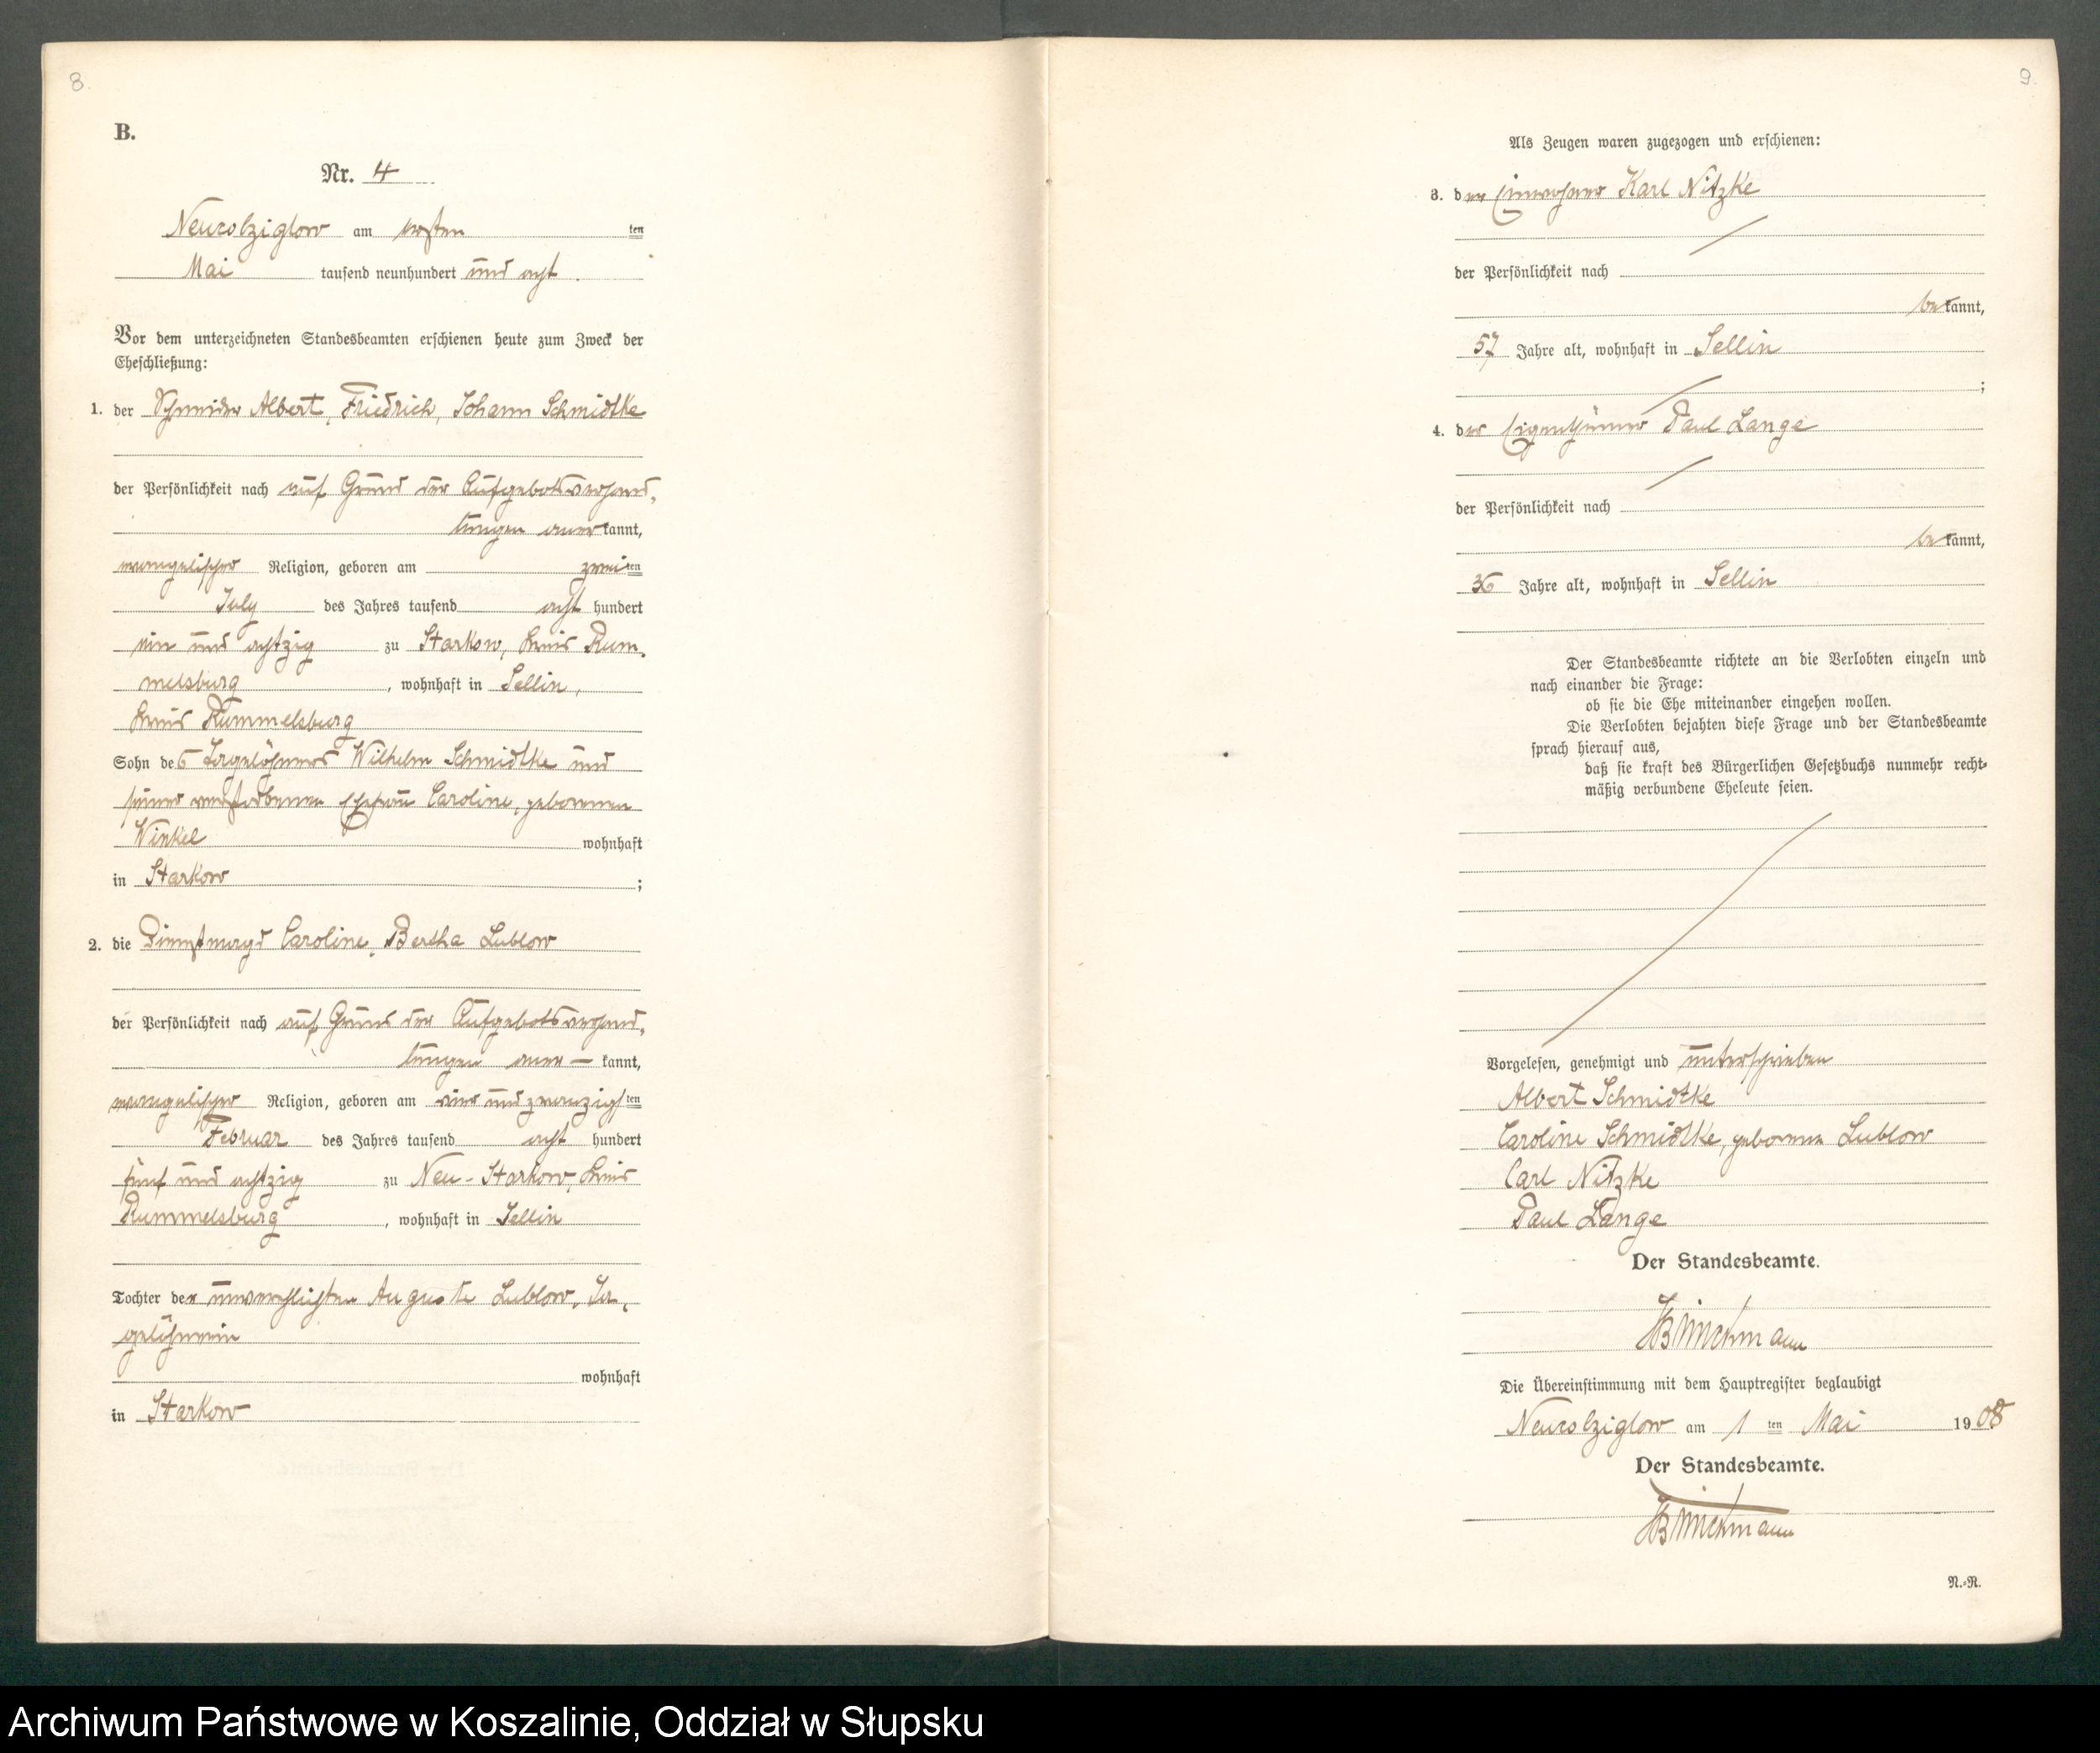 8.
B.
Nr. 4
Neukolziglow am ersten ten
Mai tausend neunhundert und acht.
Vor dem unterzeichneten Standesbeamten erschienen heute zum Zweck der
Eheschließung:
1. der Schneider Albert, Friedrich, Johann Schmidtke
der Persönlichkeit nach auf Grund der Aufgebotsverhand„
lungen anerkannt,
evangelischer Religion, geboren am zweiten
July des Jahres tausend acht hundert
ein und achtzig zu Starkow, Kreis Rum„
melsburg, wohnhaft in Sellin,
Kreis Rummelsburg
Sohn des Tagelöhners Wilhelm Schmidtke und
seiner verstorbenen Ehefrau Caroline, geborenen
Winkel wohnhaft
in Starkow;
2. die Dienstmagd Caroline, Bertha Lublow
der Persönlichkeit nach auf Grund der Aufgebotsverhand„
lungen aner— kannt,
evangelischer Religion, geboren am vier und zwanzigsten
Februar des Jahres tausend acht hundert
fünf und achtzig zu Neu-Starkow, Kreis
Rummelsburg, wohnhaft in Sellin
Tochter der unverehlichten Auguste Lublow, Ta„
gelöhnerin
wohnhaft
in Starkow
9.
Als Zeugen waren zugezogen und erschienen:
3. der Einwohner Karl Nitzke
der Persönlichkeit nach
bekannt,
57 Jahre alt, wohnhaft in Sellin
;
4. der Eigenthümer Paul Lange
der Persönlichkeit nach
bekannt,
36 Jahre alt, wohnhaft in Sellin
Der Standesbeamte richtete an die Verlobten einzeln und
nach einander die Frage:
ob sie die Ehe miteinander eingehen wollen.
Die Verlobten bejahten diese Frage und der Standesbeamte
sprach hierauf aus,
daß sie kraft des Bürgerlichen Gesetzbuchs nunmehr recht-
mäßig verbundene Eheleute seien.
Vorgelesen, genehmigt und unterschrieben
Albert Schmidtke
Caroline Schmidtke, geborene Lublow
Carl Nitzke
Paul Lange
Der Standesbeamte.
Die Übereinstimmung mit dem Hauptregister beglaubigt
Neukolziglow am 1 ten Mai 1908
Der Standesbeamte.
N.-R.
Archiwum Państwowe w Koszalinie, Oddział w Słupsku